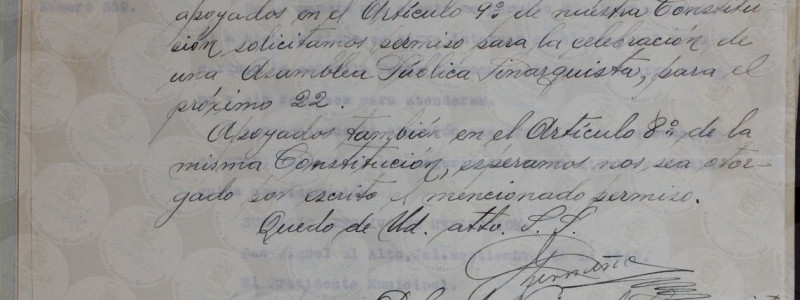 Número 659.
apoyados en el Artículo 9º de nuestra Constitu
ción, solicitamos permiso para la celebración de
una Asamblea Pública Sinarquista, para el
próximo 22.
Apoyados también en el Artículo 8º de la
misma Constitución, esperamos nos sea otor-
gado por escrito el mencionado permiso.
Quedo de Ud. atto. S. S.
San Miguel el Alto, Jal.
El Presidente Municipal.